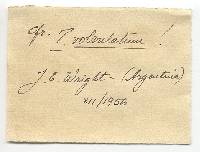 cfr. T. volvulatum !
J. E. Wright - (Argentina)
VII/1956